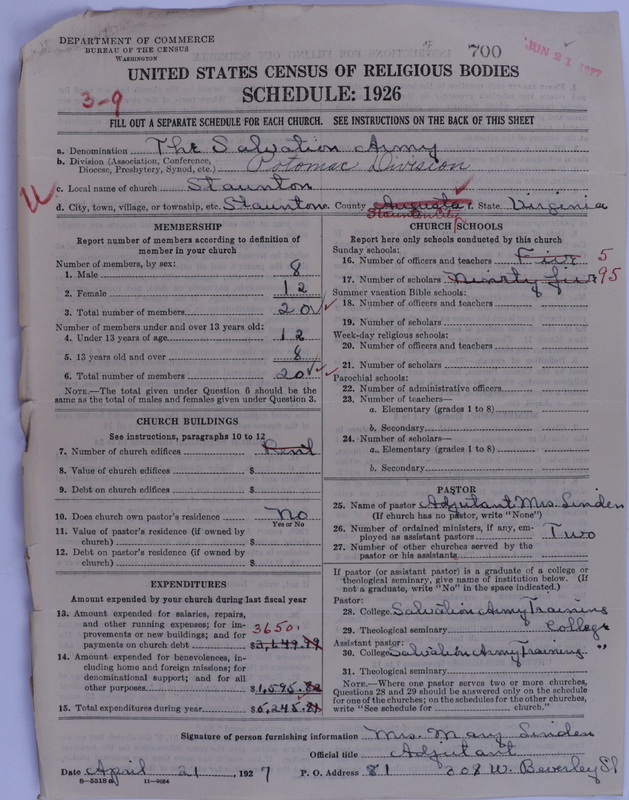 DEPARTMENT OF COMMERCE
BUREAU OF THE CENSUS
WASHINGTON
700
JUN 21 1927
UNITED STATES CENSUS OF RELIGIOUS BODIES
SCHEDULE: 1926
3-9
FILL OUT A SEPARATE SCHEDULE FOR EACH CHURCH. SEE INSTRUCTIONS ON THE BACK OF THIS SHEET
a. Denomination The Salvation Army
b. Division (Association, Conference, Diocese, Presbytery, Synod, etc.) Potomac Division
c. Local name of church Staunton
d. City, town, village, or township, etc. Staunton County Augusta State Virginia
Staunton City
MEMBERSHIP
Report number of members according to definition of
member in your church
Number of members, by sex:
1. Male 8
2. Female 12
3. Total number of members 20
Number of members under and over 13 years old:
4. Under 13 years of age 12
5. 13 years old and over 8
6. Total number of members 20
NOTE.—The total given under Question 6 should be the
same as the total of males and females given under Question 3.
CHURCH BUILDINGS
See instructions, paragraphs 10 to 12
7. Number of church edifices Rent
8. Value of church edifices $
9. Debt on church edifices $
10. Does church own pastor's residence No
Yes or No
11. Value of pastor's residence (if owned by
church) $
12. Debt on pastor's residence (if owned by
church) $
EXPENDITURES
Amount expended by your church during last fiscal year
13. Amount expended for salaries, repairs,
and other running expenses; for im-
provements or new buildings; and for
payments on church debt $3,649.99
3650
14. Amount expended for benevolences, in-
cluding home and foreign missions; for
denominational support; and for all
other purposes $1,595.82
15. Total expenditures during year $5,245.81
CHURCH SCHOOLS
Report here only schools conducted by this church
Sunday schools:
16. Number of officers and teachers Five 5
17. Number of scholars Ninety five 95
Summer vacation Bible schools:
18. Number of officers and teachers
19. Number of scholars
Week-day religious schools:
20. Number of officers and teachers
21. Number of scholars
Parochial schools:
22. Number of administrative officers
23. Number of teachers—
a. Elementary (grades 1 to 8)
b. Secondary
24. Number of scholars—
a. Elementary (grades 1 to 8)
b. Secondary
PASTOR
25. Name of pastor Adjutant Mrs. Linden
(If church has no pastor, write "None")
26. Number of ordained ministers, if any, em-
ployed as assistant pastors Two
27. Number of other churches served by the
pastor or his assistants
If pastor (or assistant pastor) is a graduate of a college or
theological seminary, give name of institution below. (If
not a graduate, write "No" in the space indicated.)
Pastor:
28. College Salvation Army Training
29. Theological seminary College
Assistant pastor:
30. College Salvation Army Training "
31. Theological seminary
NOTE.—Where one pastor serves two or more churches,
Questions 28 and 29 should be answered only on the schedule
for one of the churches; on the schedules for the other churches,
write "See schedule for church."
Signature of person furnishing information Mrs. Mary Linden
Official title Adjutant
Date April 21, 1927 P. O. Address 81 308 W. Beverley St
8-5318a 11-9054